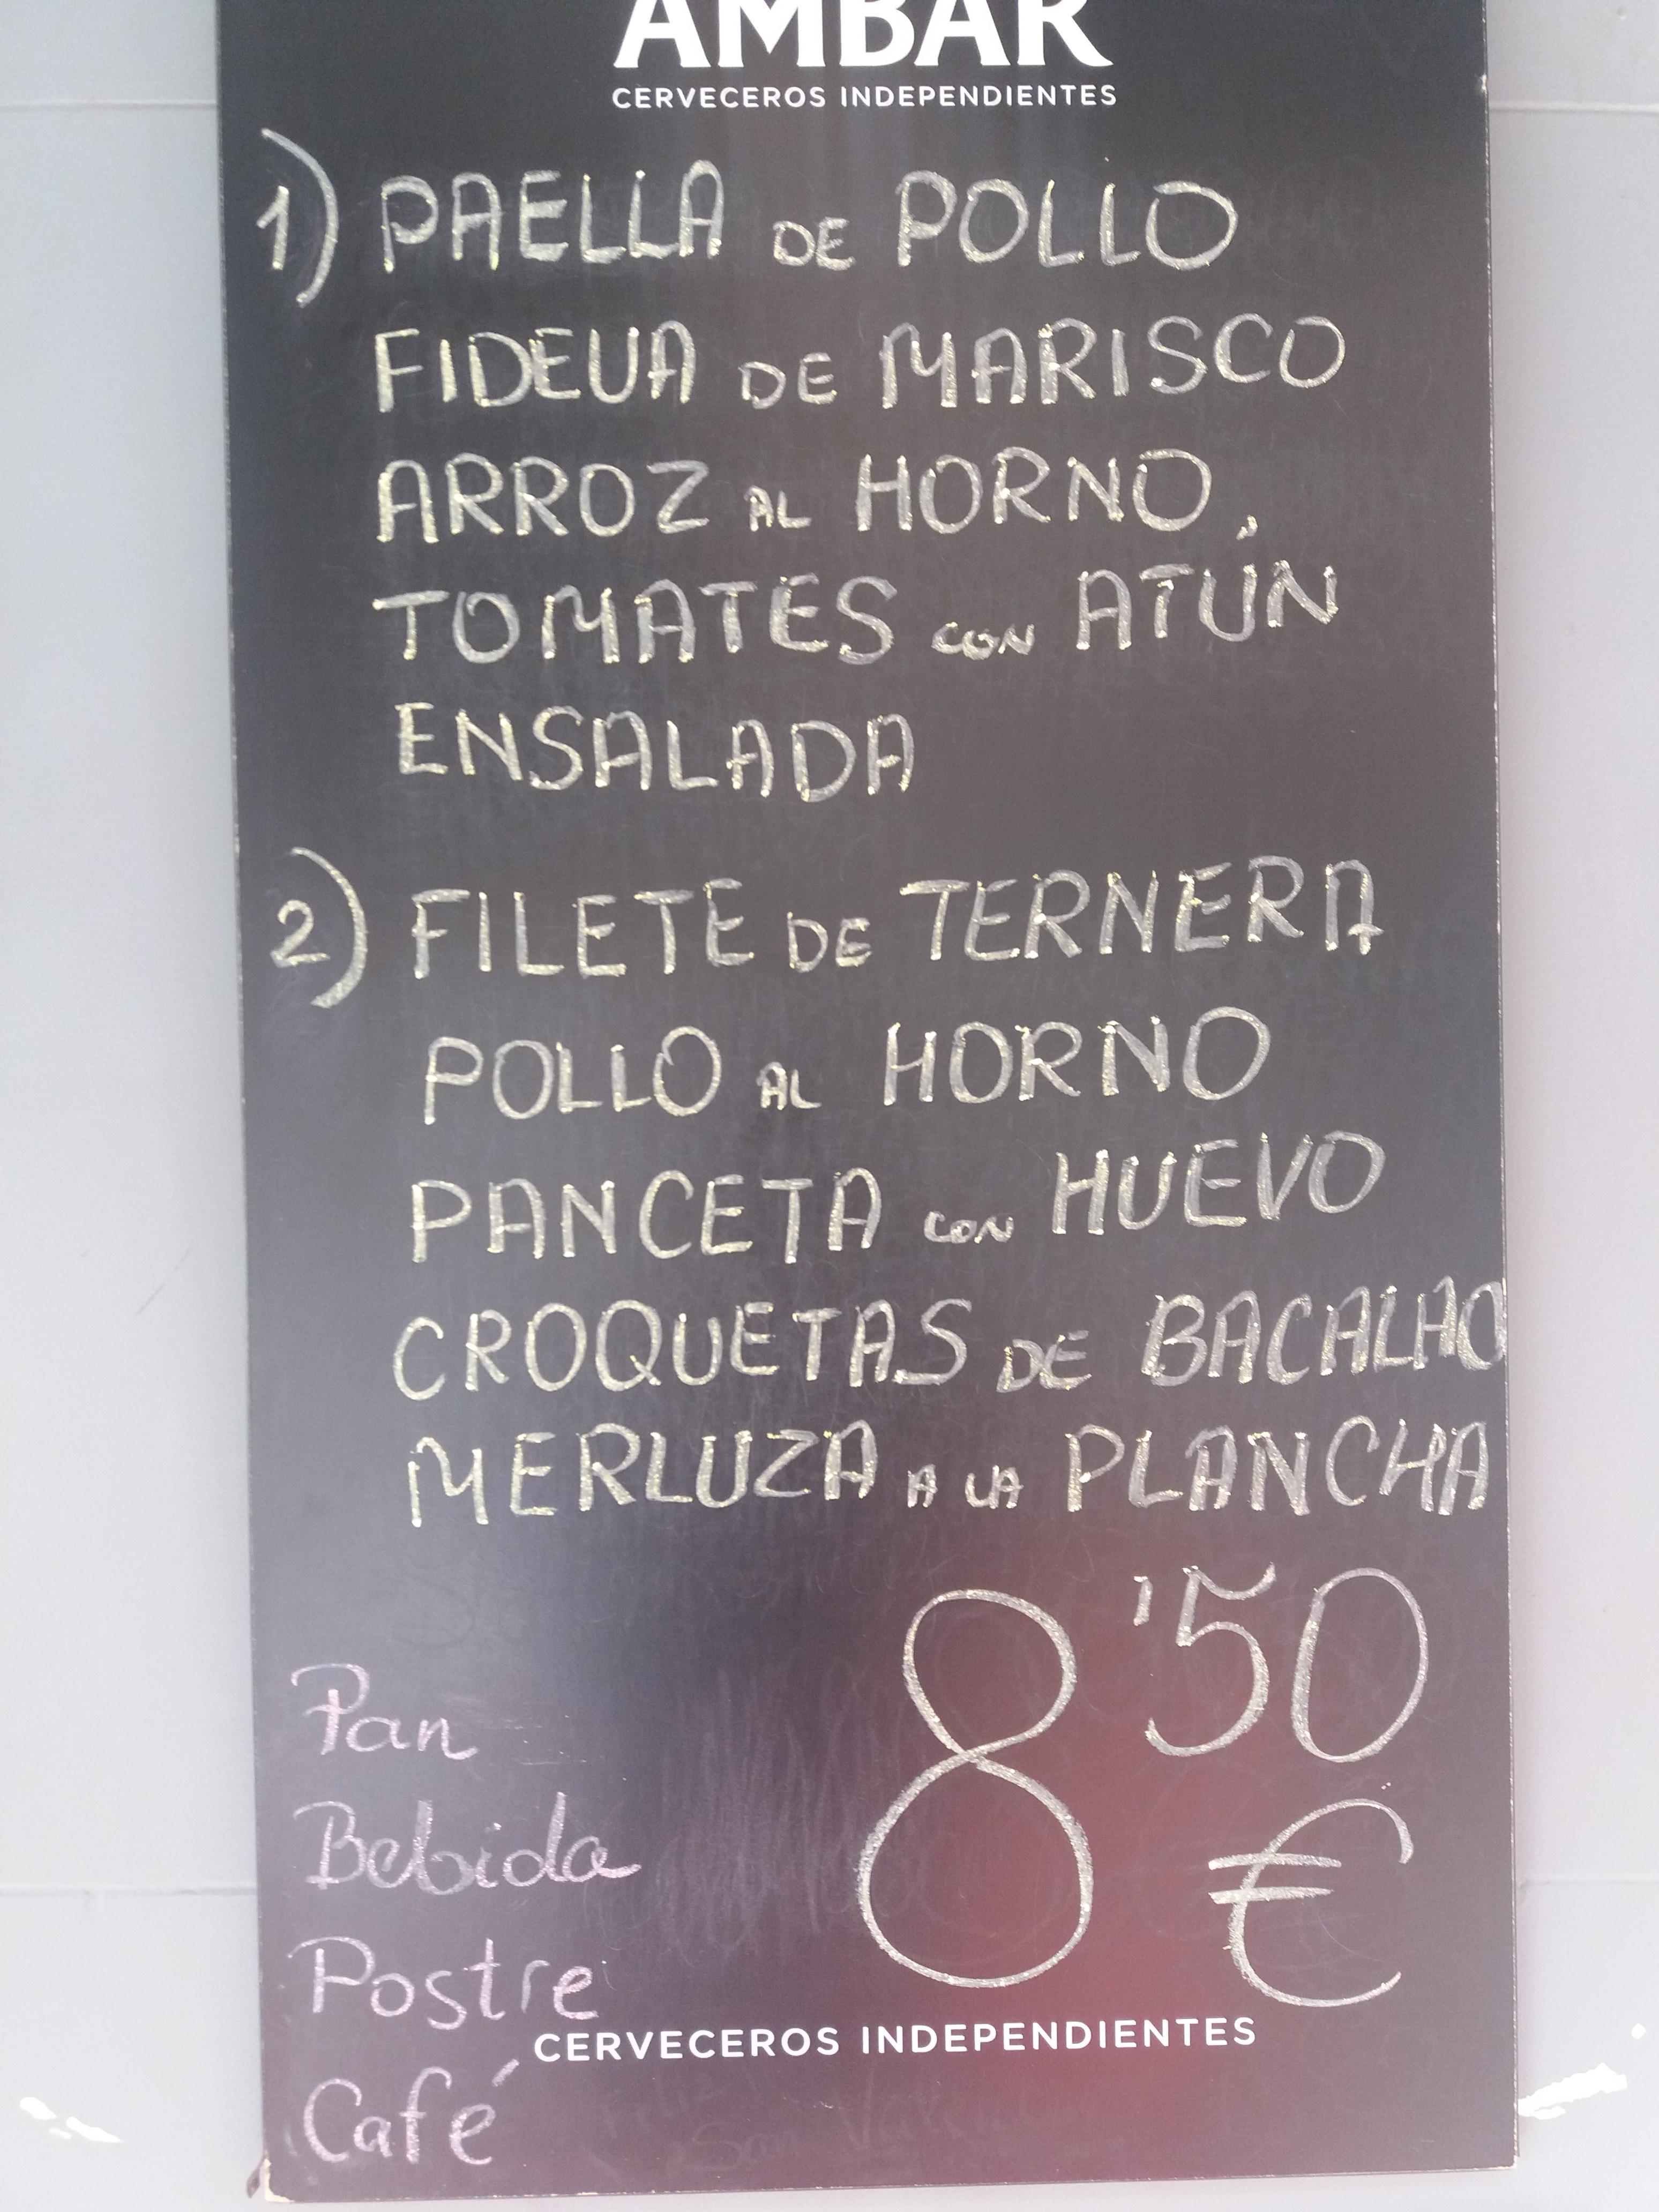 AMBAR
CERVECEROS INDEPENDIENTES
1) PAELLA DE POLLO
FIDEUA DE MARISCO
ARROZ AL HORNO
TOMATES CON ATÚN
ENSALADA
2) FILETE DE TERNERA
POLLO AL HORNO
PANCETA CON HUEVO
CROQUETAS DE BACALAO
MERLUZA A LA PLANCHA
8'50 €
Pan
Bebida
Postre
CERVECEROS INDEPENDIENTES
Café